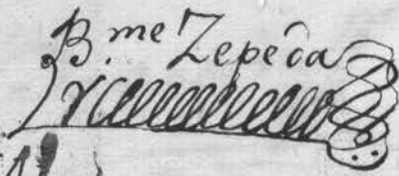 B.me Zepeda